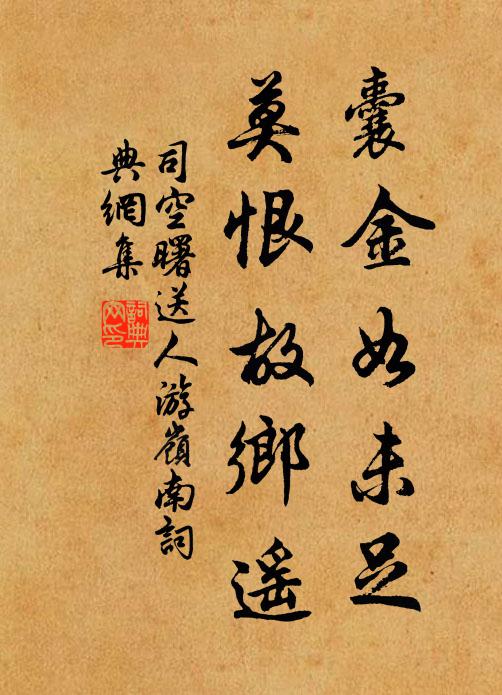 囊金如未足
莫恨故鄉遥
司空曙送人游嶺南詞
典網集
詞典網印